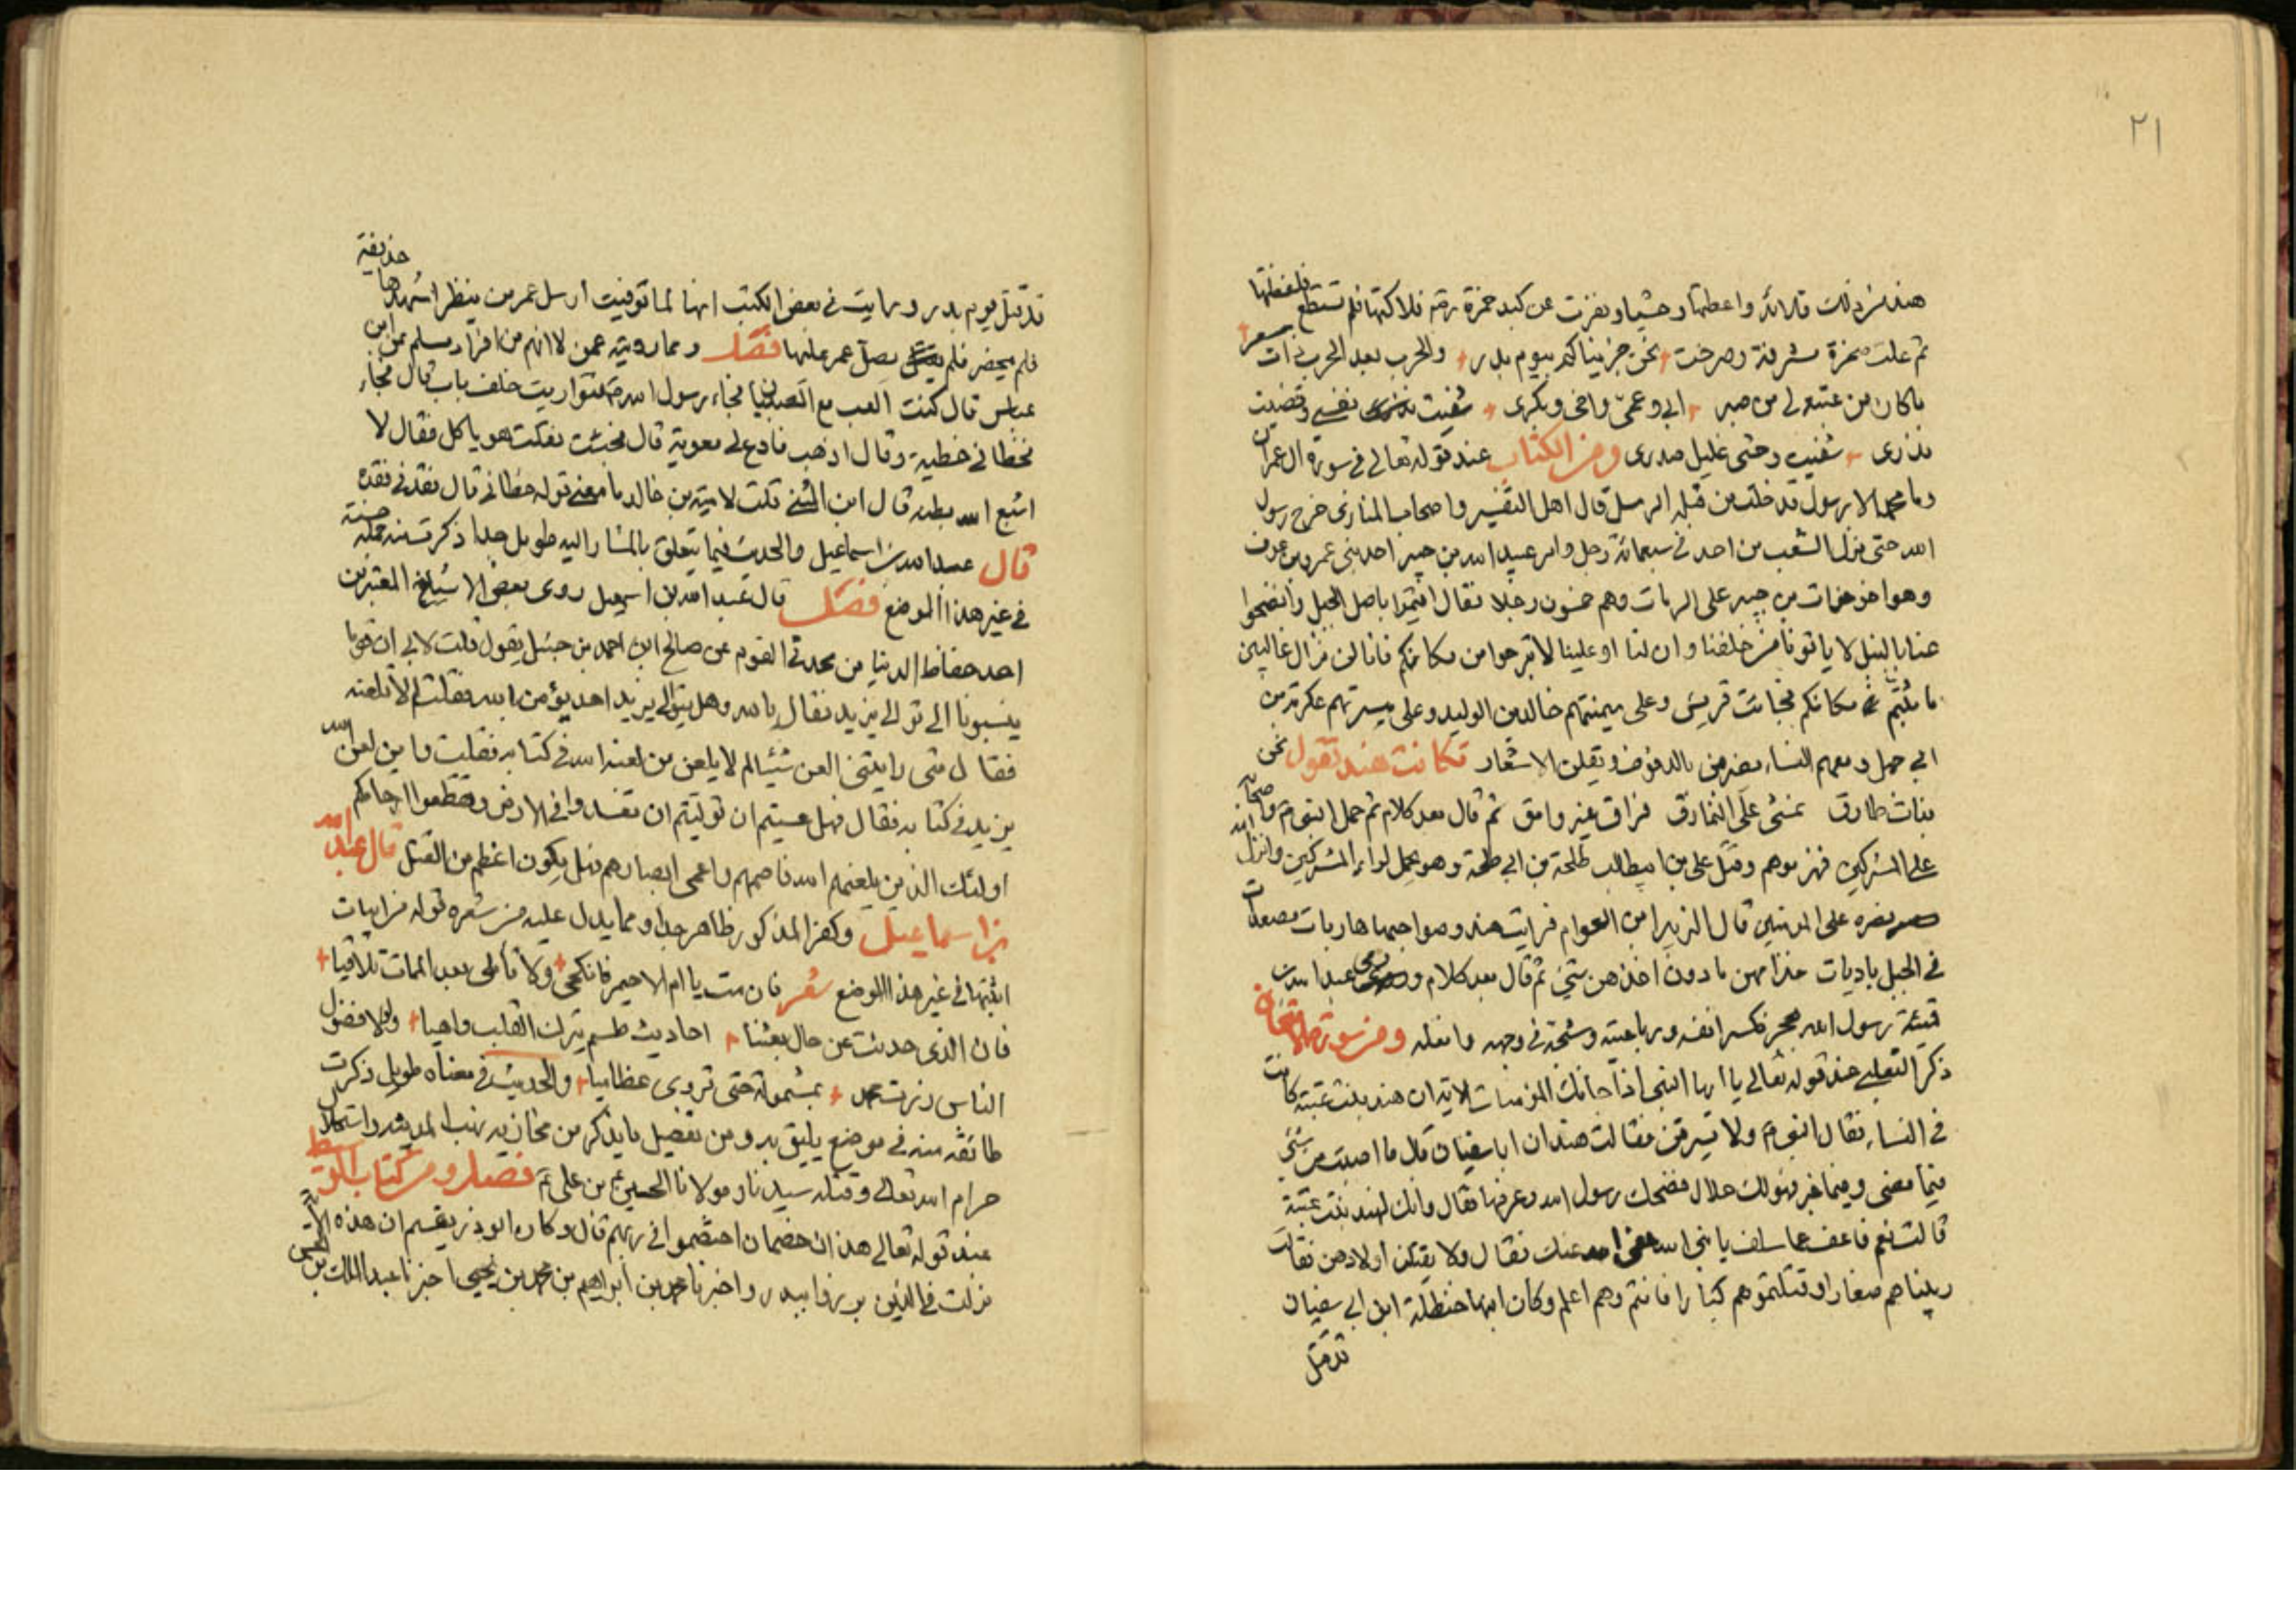 ٢١
هند من ذلك قلائد واعطتها وحشيا وبقرت عن كبد حمزة رضه فلاكتها فلم تستطع فلفظتها
ثم علت صخرة مشرفة وصرخت نحن جزيناكم بيوم بدر والحرب بعد الحرب ذات سعر
ما كان من عتبة لي من صبر ابي وعمي واخي وبكرى شفيت نفسي وقضيت
نذرى شفيت وحشى غليل صدرى ومن الكتاب عند قوله تعالى في سورة ال عمران
وما محمد الا رسول قد خلت من قبله الرسل قال اهل التفسير واصحاب المغازى خرج رسول
الله حتى نزل الشعب من احد في سبعمائة رجل وامر عبد الله بن جبير احد بني عمرو بن عوف
وهو اخو خوات بن جبير على الرماة وهم خمسون رجلا فقال اقيموا باصل الجبل وانضحوا
عنا بالنبل لا ياتونا من خلفنا وان لنا او علينا لا تبرحوا من مكانكم فانا لن نزال غالبين
ما ثبتم مكانكم فجائت قريش وعلى ميمنتهم خالد بن الوليد وعلى ميسرتهم عكرمة بن
ابي جهل ومعهم النساء يضربن بالدفوف ويقلن الاشعار فكانت هند تقول نحن
بنات طارق نمشى على النمارق فراق غير وامق ثم قال بعد كلام ثم حمل النبي م واصحابه
على المشركين فهزموهم وقتل على بن ابيطالب طلحة بن ابي طلحة وهو يحمل لواء المشركين وانزل الله
نصره على المؤمنين قال الزبير ابن العوام فرايت هند وصواحبها هاربات مصعدات
في الجبل باديات خذامهن ما دون اخذهن شئ ثم قال بعد كلام ورمى عبد الله بن
قمئة رسول الله بحجر فكسر انفه ورباعيته وشجه في وجهه واثقله ومن سورة الامتحان
ذكر الثعلبي عند قوله تعالى يا ايها النبي اذا جائك المؤمنات الاية ان هند بنت عتبة كانت
في النساء فقال النبي م ولا يسرقن فقالت هند ان ابا سفيان قال ما اصبت من شئ
فيما مضى وفيما غبر فهو لك حلال فضحك رسول الله وعرفها فقال وانك لهند بنت عتبة
قالت نعم فاعف عما سلف يا نبي الله عفى الله عنك فقال ولا يقتلن اولادهن فقالت
ربيناهم صغارا وقتلتموهم كبارا فانتم وهم اعلم وكان ابنها حنظلة ابن ابي سفيان
قد قتل
قد قتل يوم بدر ورايت في بعض الكتب انها لما توفيت ارسل عمر من ينظر اشهدها حذيفة
فلم يحضر فلم يصل عمر عليها فصل ومما رويته عمن لا اتهم من افراد مسلم عن ابن
عباس قال كنت العب مع الصبيان فجاء رسول الله ص فتواريت خلف باب قال فجاء
فخطاني خطية وقال اذهب فادع لي معوية قال فجئت فقلت هو ياكل فقال لا
اشبع الله بطنه قال ابن المثنى قلت لامية بن خالد ما معنى قوله خطاني قال نقدني نقده
قال عبد الله بن اسماعيل والحديث فيما يتعلق بالمشار اليه طويل جدا ذكرت منه جملة حسنة
في غير هذا الموضع فصل قال عبد الله بن اسمعيل روى بعض الاشياخ المعتبرين
احد حفاظ الدنيا من محدثي القوم عن صالح ابن احمد بن حنبل يقول قلت لابي ان قوما
ينسبونا الى توالي يزيد فقال يا بني وهل يتوالى يزيد احد يؤمن بالله فقلت لم لا تلعنه
فقال متى رايتني العن شيئا لم لا يلعن من لعنه الله في كتابه فقلت واين لعن الله
يزيد في كتابه فقال فهل عسيتم ان توليتم ان تفسدوا في الارض وتقطعوا ارحامكم
اولئك الذين يلعنهم الله فاصمهم واعمى ابصارهم فهل يكون اعظم من القتل قال عبد الله
بن اسماعيل وكفر المذكور ظاهر جدا ومما يدل عليه من شعره قوله من ابيات
اثبتها في غير هذا الموضع شعر فان مت يا ام الاحيمر فانكحي ولا تاملي بعد الممات تلاقيا
فان الذى حدثت عن حال بعثنا احاديث طسم تترك القلب واهيا ولولا فضول
الناس زرت محمدا بمشمولة حتى تروى عظاميا والحديث في معناه طويل ذكرت
طائفة منه في موضع يليق به ومن تفصيل ما يذكر من مخازيه نهب المدينة واستحلال
حرام الله تعالى وقتله سيدنا ومولانا الحسين بن على ع فصل ومن كتاب الوسيط
عند قوله تعالى هذان خصمان اختصموا في ربهم قال وكان ابو ذر يقسم ان هذه الاية
نزلت في الذين برزوا ببدر واخبرنا محمد بن ابراهيم بن محمد بن يحيى اخبرنا عبد الملك بن الحسن